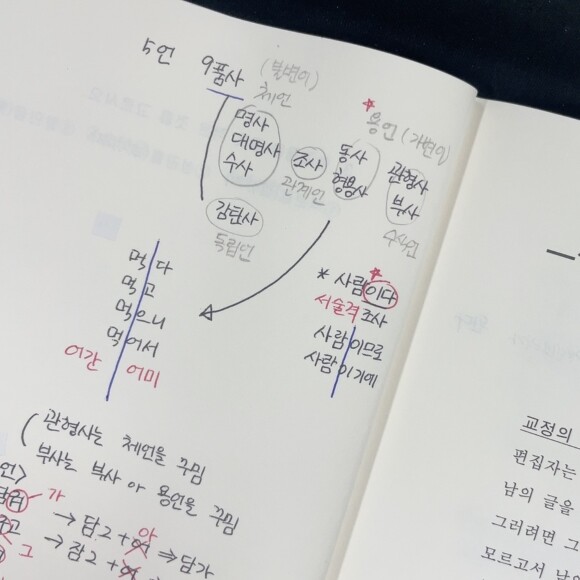 5언 9품사 (불변이)
체언
명사
대명사
수사
조사
관계언
* 용언 (가변이)
동사
형용사
관형사
부사
수식언
감탄사
독립언
먹다
먹고
먹으니
먹어서
어간 어미
* 사람이다
서술격 조사
사람이므로
사람이기에
(관형사는 체언을 꾸밈
부사는 부사 아 용언을 꾸밈
언>
가
→ 담그+어 아 ⇒ 담가
그
→ 잠그+어
교정의
편집자는
남의 글을
그러려면 그
모르고서 남